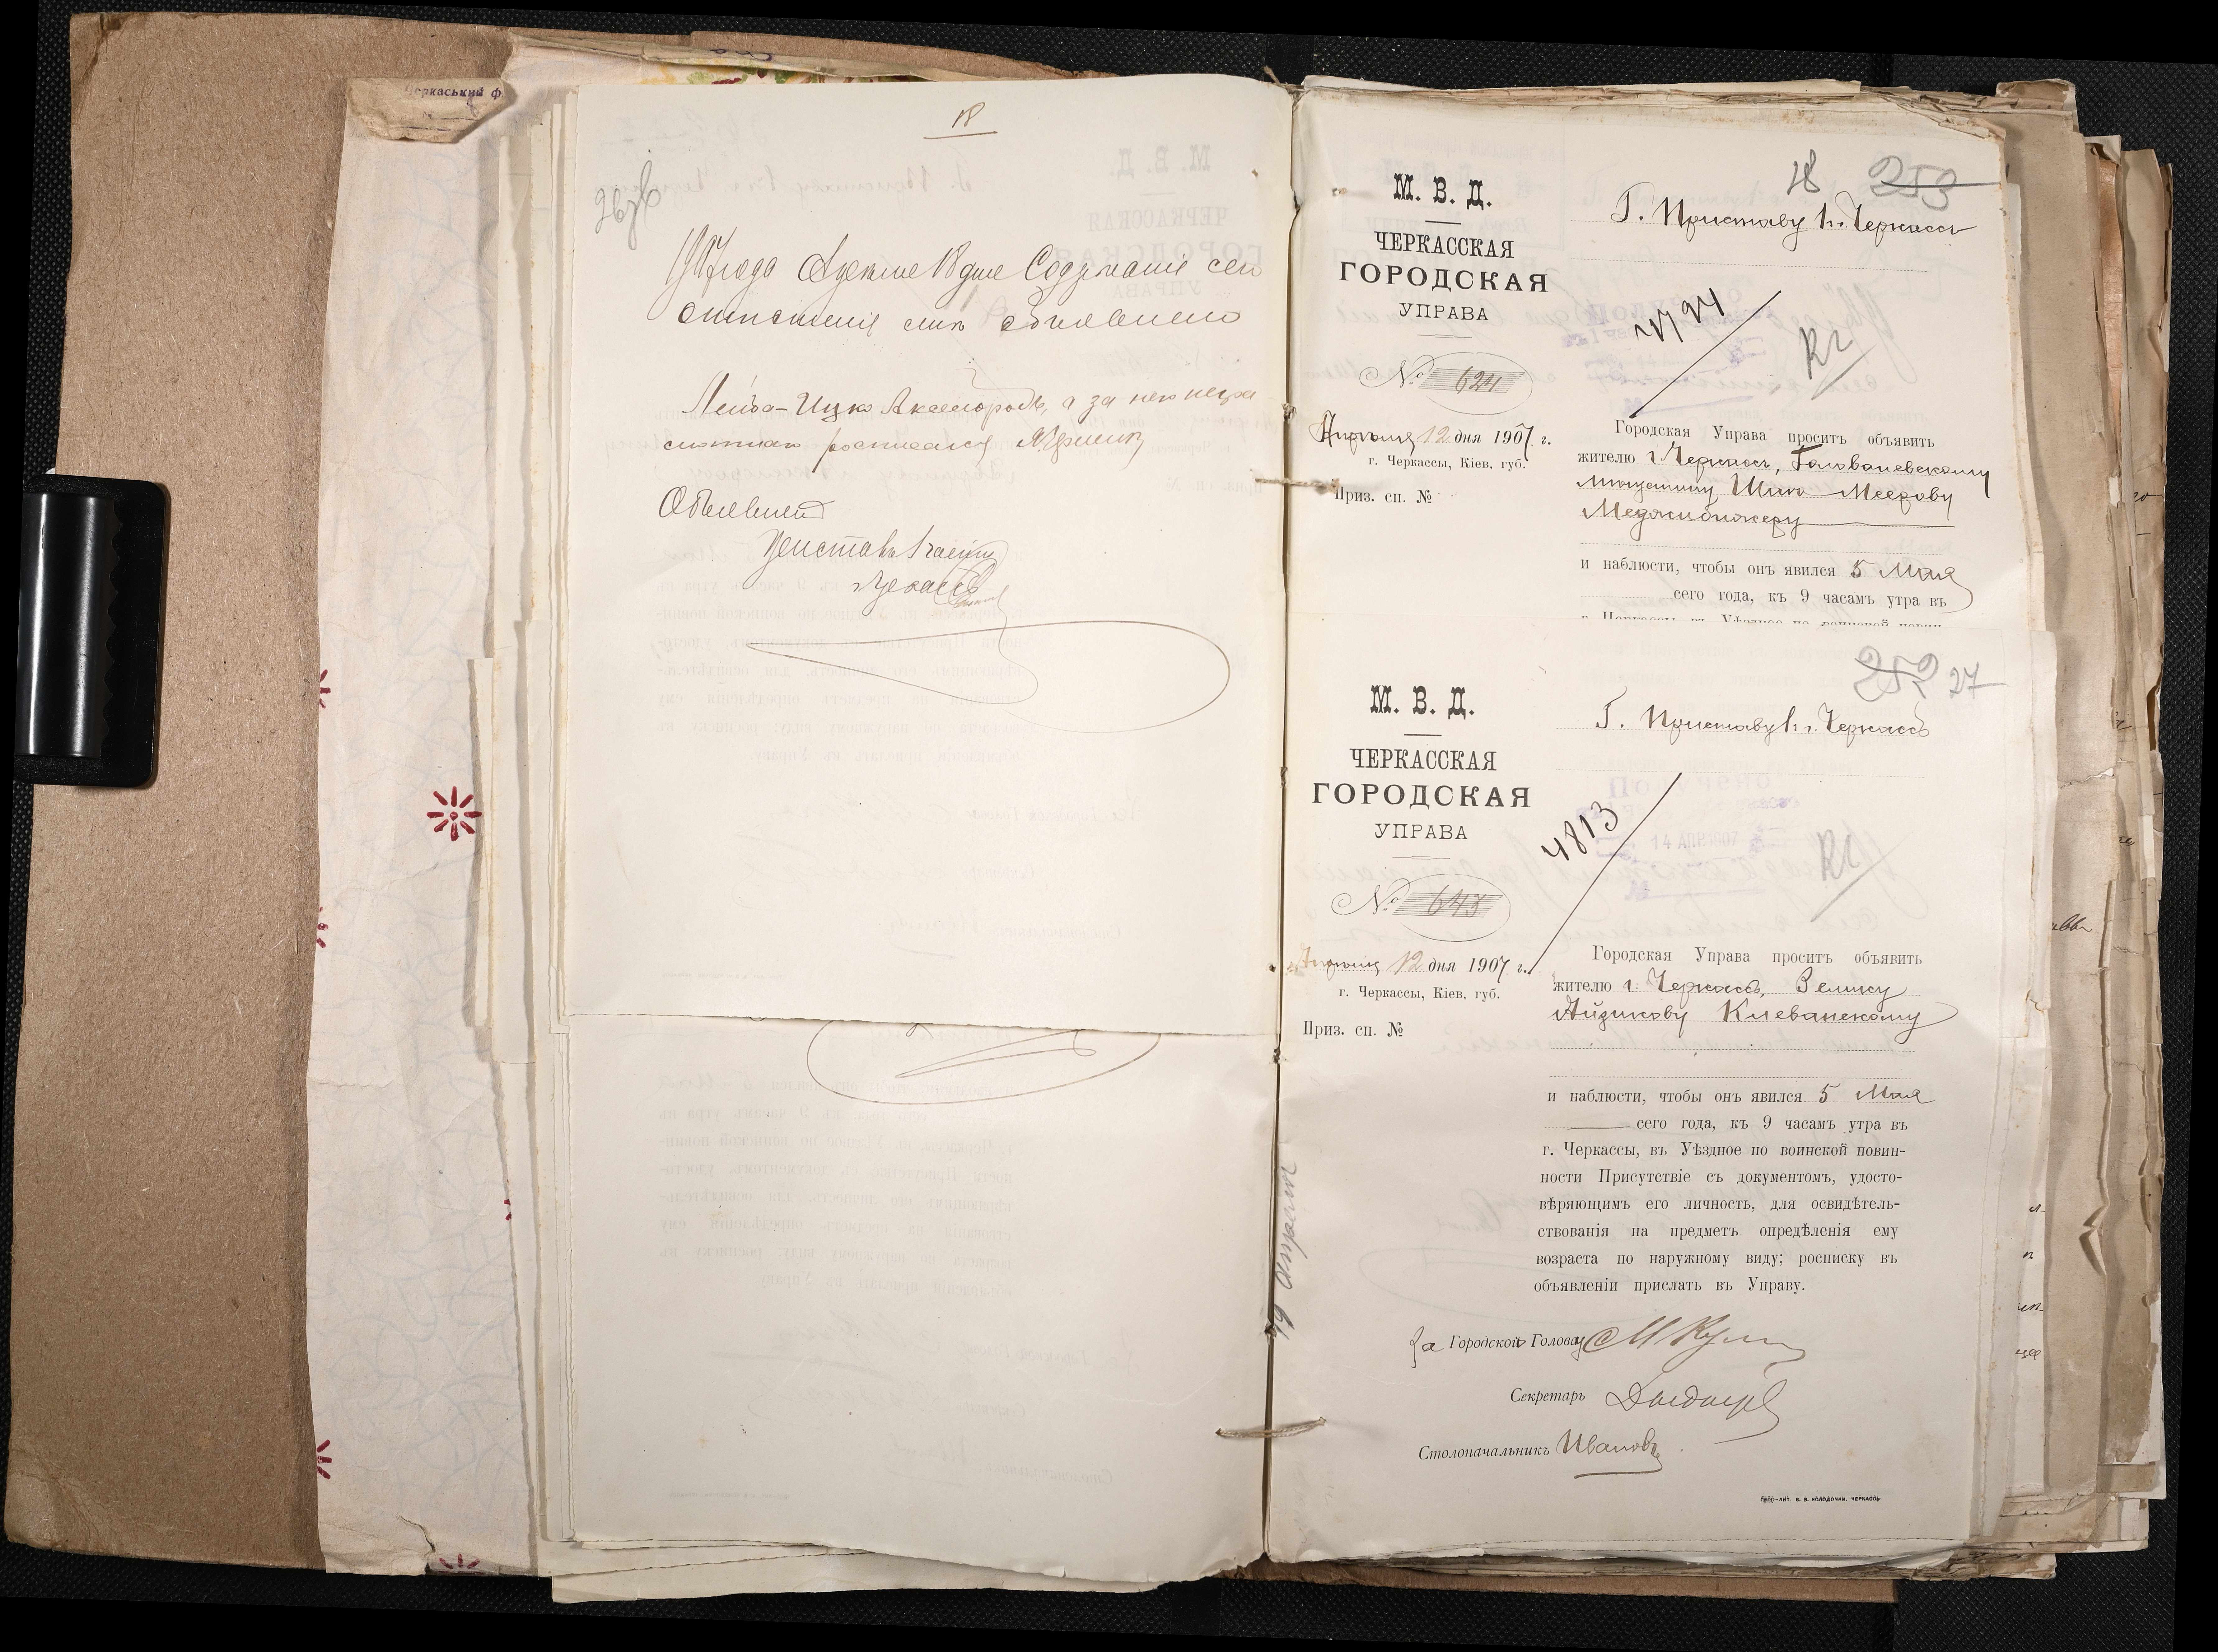 Черкаський ф
18
1907 года Апреля 18 дня Содержание сего
отношения мне объявлено
Лейба-Ицко Аксельродъ, а за него негра
мотнаго росписался
Объявилъ
Приставъ 1 части
г. Черкассъ
М. В. Д.
ЧЕРКАССКАЯ
ГОРОДСКАЯ
УПРАВА
№ 624
Апреля 12 дня 1907 г.
г. Черкассы, Кіев. губ.
Приз. сп. №
28 253
Г. Приставу 1 ч. г. Черкассъ
Городская Управа проситъ объявить
жителю г. Черкассъ, Голованевскому
мещанину Меерову
Меджибижеру
и наблюсти, чтобы онъ явился 5 Мая
сего года, къ 9 часамъ утра въ
г. Черкассы, въ Уѣздное по воинской повин-
М. В. Д.
ЧЕРКАССКАЯ
ГОРОДСКАЯ
УПРАВА
№ 643
Апреля 12 дня 1907 г.
г. Черкассы, Кіев. губ.
Приз. сп. №
252 27
Г. Приставу 1 ч. г. Черкассъ
4813
14 АПР 1907
Городская Управа проситъ объявить
жителю г. Черкассъ, Зелику
Айзикову Клеванскому
и наблюсти, чтобы онъ явился 5 Мая
сего года, къ 9 часамъ утра въ
г. Черкассы, въ Уѣздное по воинской повин-
ности Присутствіе съ документомъ, удосто-
вѣряющимъ его личность, для освидѣтель-
ствованія на предметъ опредѣленія ему
возраста по наружному виду; росписку въ
объявленіи прислать въ Управу.
За Городской Голова
Секретарь
Столоначальникъ Ивановъ